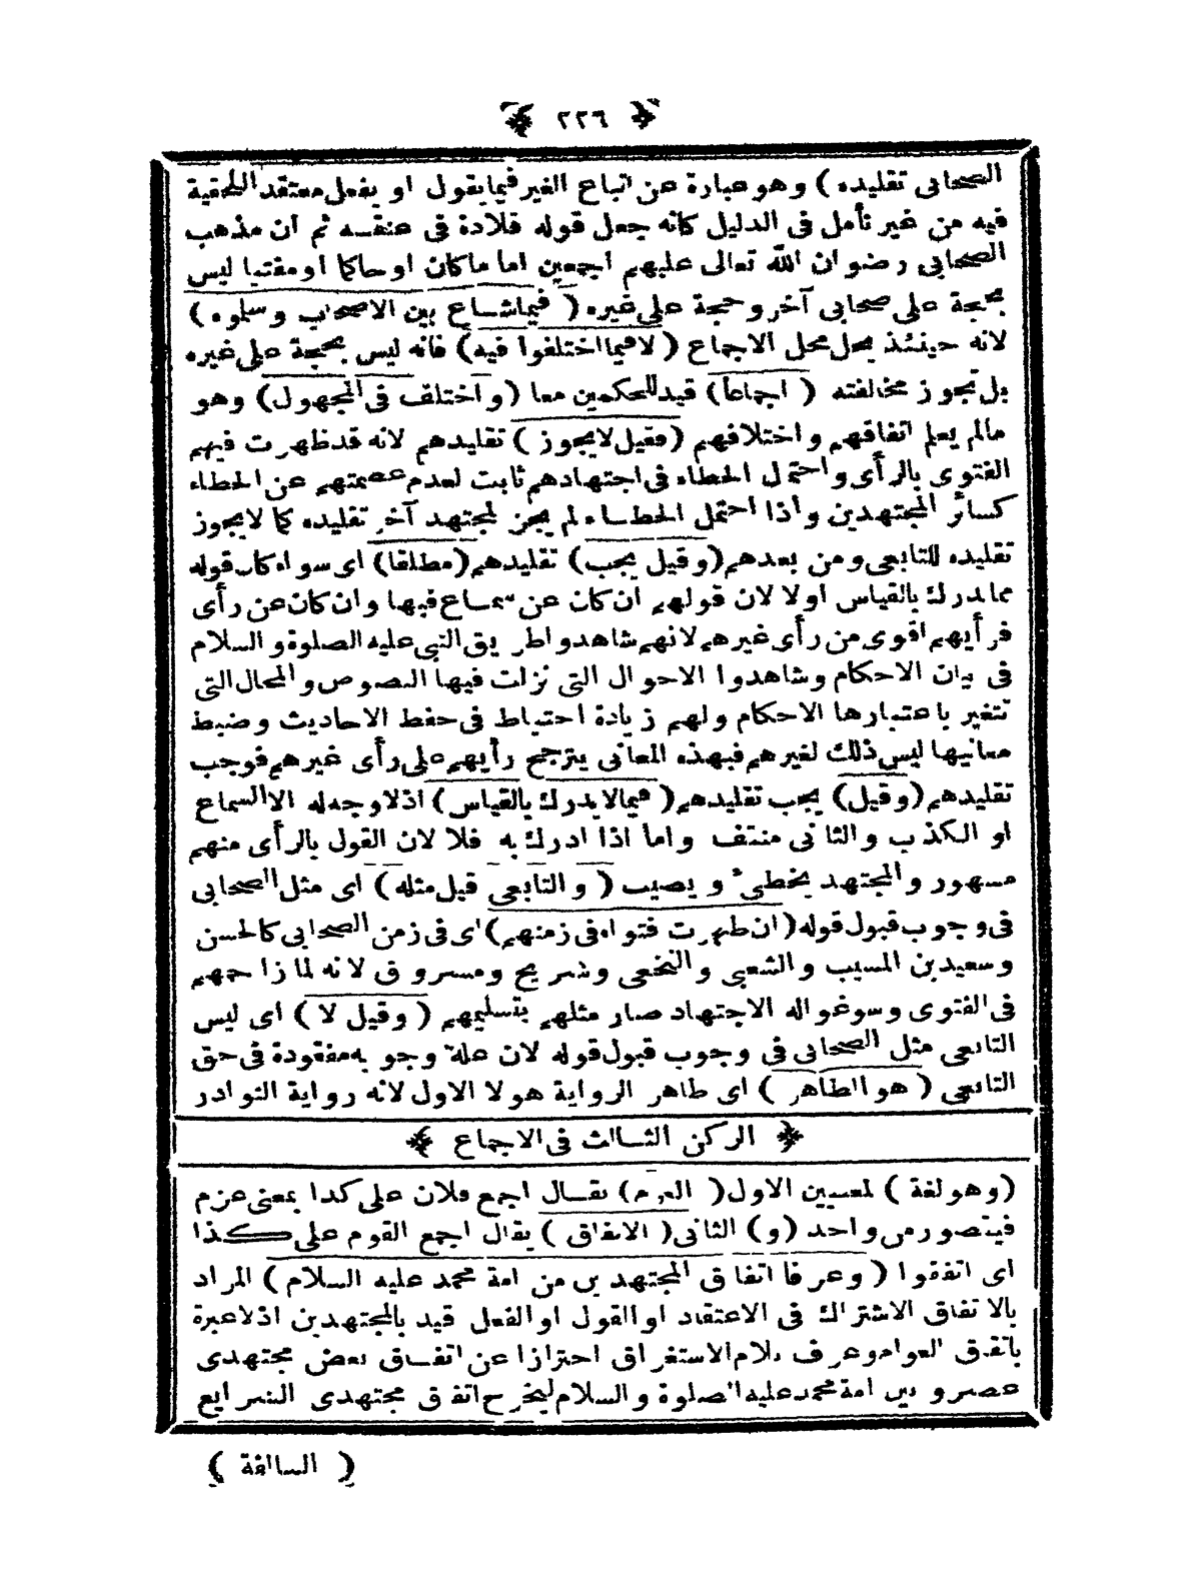 ﴿ ٢٢٦ ﴾
الصحابى تقليده ) وهو عبارة عن اتباع الغير فيما يقول او يفعل معتقدا للحقية
فيه من غير تأمل فى الدليل كانه جعل قوله قلادة فى عنقه ثم ان مذهب
الصحابى رضوان الله تعالى عليهم اجمعين اما ما كان او حاكما او مفتيا ليس
بحجة على صحابى آخر وحجة على غيره ( فيما شاع بين الاصحاب وسلوه )
لانه حينئذ يحل محل الاجماع ( لا فيما اختلفوا فيه ) فانه ليس بحجة على غيره
بل تجوز مخالفته ( اجماعا ) قيد للحكمين معا ( واختلف فى المجهول ) وهو
مالم يعلم اتفاقهم واختلافهم ( فقيل لا يجوز ) تقليدهم لانه قد ظهرت فيهم
الفتوى بالرأى واحتمال الخطاء فى اجتهادهم ثابت لعدم عصمتهم عن الخطاء
كسائر المجتهدين واذا احتمل الخطاء لم يجز لمجتهد آخر تقليده كما لا يجوز
تقليده للتابعى ومن بعدهم ( وقيل يجب ) تقليدهم ( مطلقا ) اى سواء كان قوله
مما يدرك بالقياس اولا لان قولهم ان كان عن سماع فبها وان كان عن رأى
فرأيهم اقوى من رأى غيرهم لانهم شاهدوا طريق النبى عليه الصلوة والسلام
فى بيان الاحكام وشاهدوا الاحوال التى نزلت فيها النصوص والمحال التى
تتغير باعتبارها الاحكام ولهم زيادة احتياط فى حفظ الاحاديث وضبط
معانيها ليس ذلك لغيرهم فبهذه المعانى يترجح رأيهم على رأى غيرهم فوجب
تقليدهم ( وقيل ) يجب تقليدهم ( فيما لا يدرك بالقياس ) اذ لا وجه له الا السماع
او الكذب والثانى منتف واما اذا ادرك به فلا لان القول بالرأى منهم
مشهور والمجتهد يخطئ ويصيب ( والتابعى قيل مثله ) اى مثل الصحابى
فى وجوب قبول قوله ( ان ظهرت فتواه فى زمنهم ) اى فى زمن الصحابى كالحسن
وسعيد بن المسيب والشعبى والنخعى وشريح ومسروق لانه لما زاحمهم
فى الفتوى وسوغوا له الاجتهاد صار مثلهم بتسليمهم ( وقيل لا ) اى ليس
التابعى مثل الصحابى فى وجوب قبول قوله لان علة وجوبه مفقودة فى حق
التابعى ( هو الظاهر ) اى ظاهر الرواية هو لا الاول لانه رواية النوادر
﴿ الركن الثالث فى الاجماع ﴾
( وهو لغة ) لمعنيين الاول ( العزم ) يقال اجمع فلان على كذا بمعنى عزم
فيتصور من واحد ( و ) الثانى ( الاتفاق ) يقال اجمع القوم على كذا
اى اتفقوا ( وعرفا اتفاق المجتهدين من امة محمد عليه السلام ) المراد
بالاتفاق الاشتراك فى الاعتقاد او القول او الفعل قيد بالمجتهدين اذ لا عبرة
باتفاق العوام وعرف بلام الاستغراق احترازا عن اتفاق بعض مجتهدى
عصر وبين امة محمد عليه الصلوة والسلام ليخرج اتفاق مجتهدى الشرايع
( السالفة )